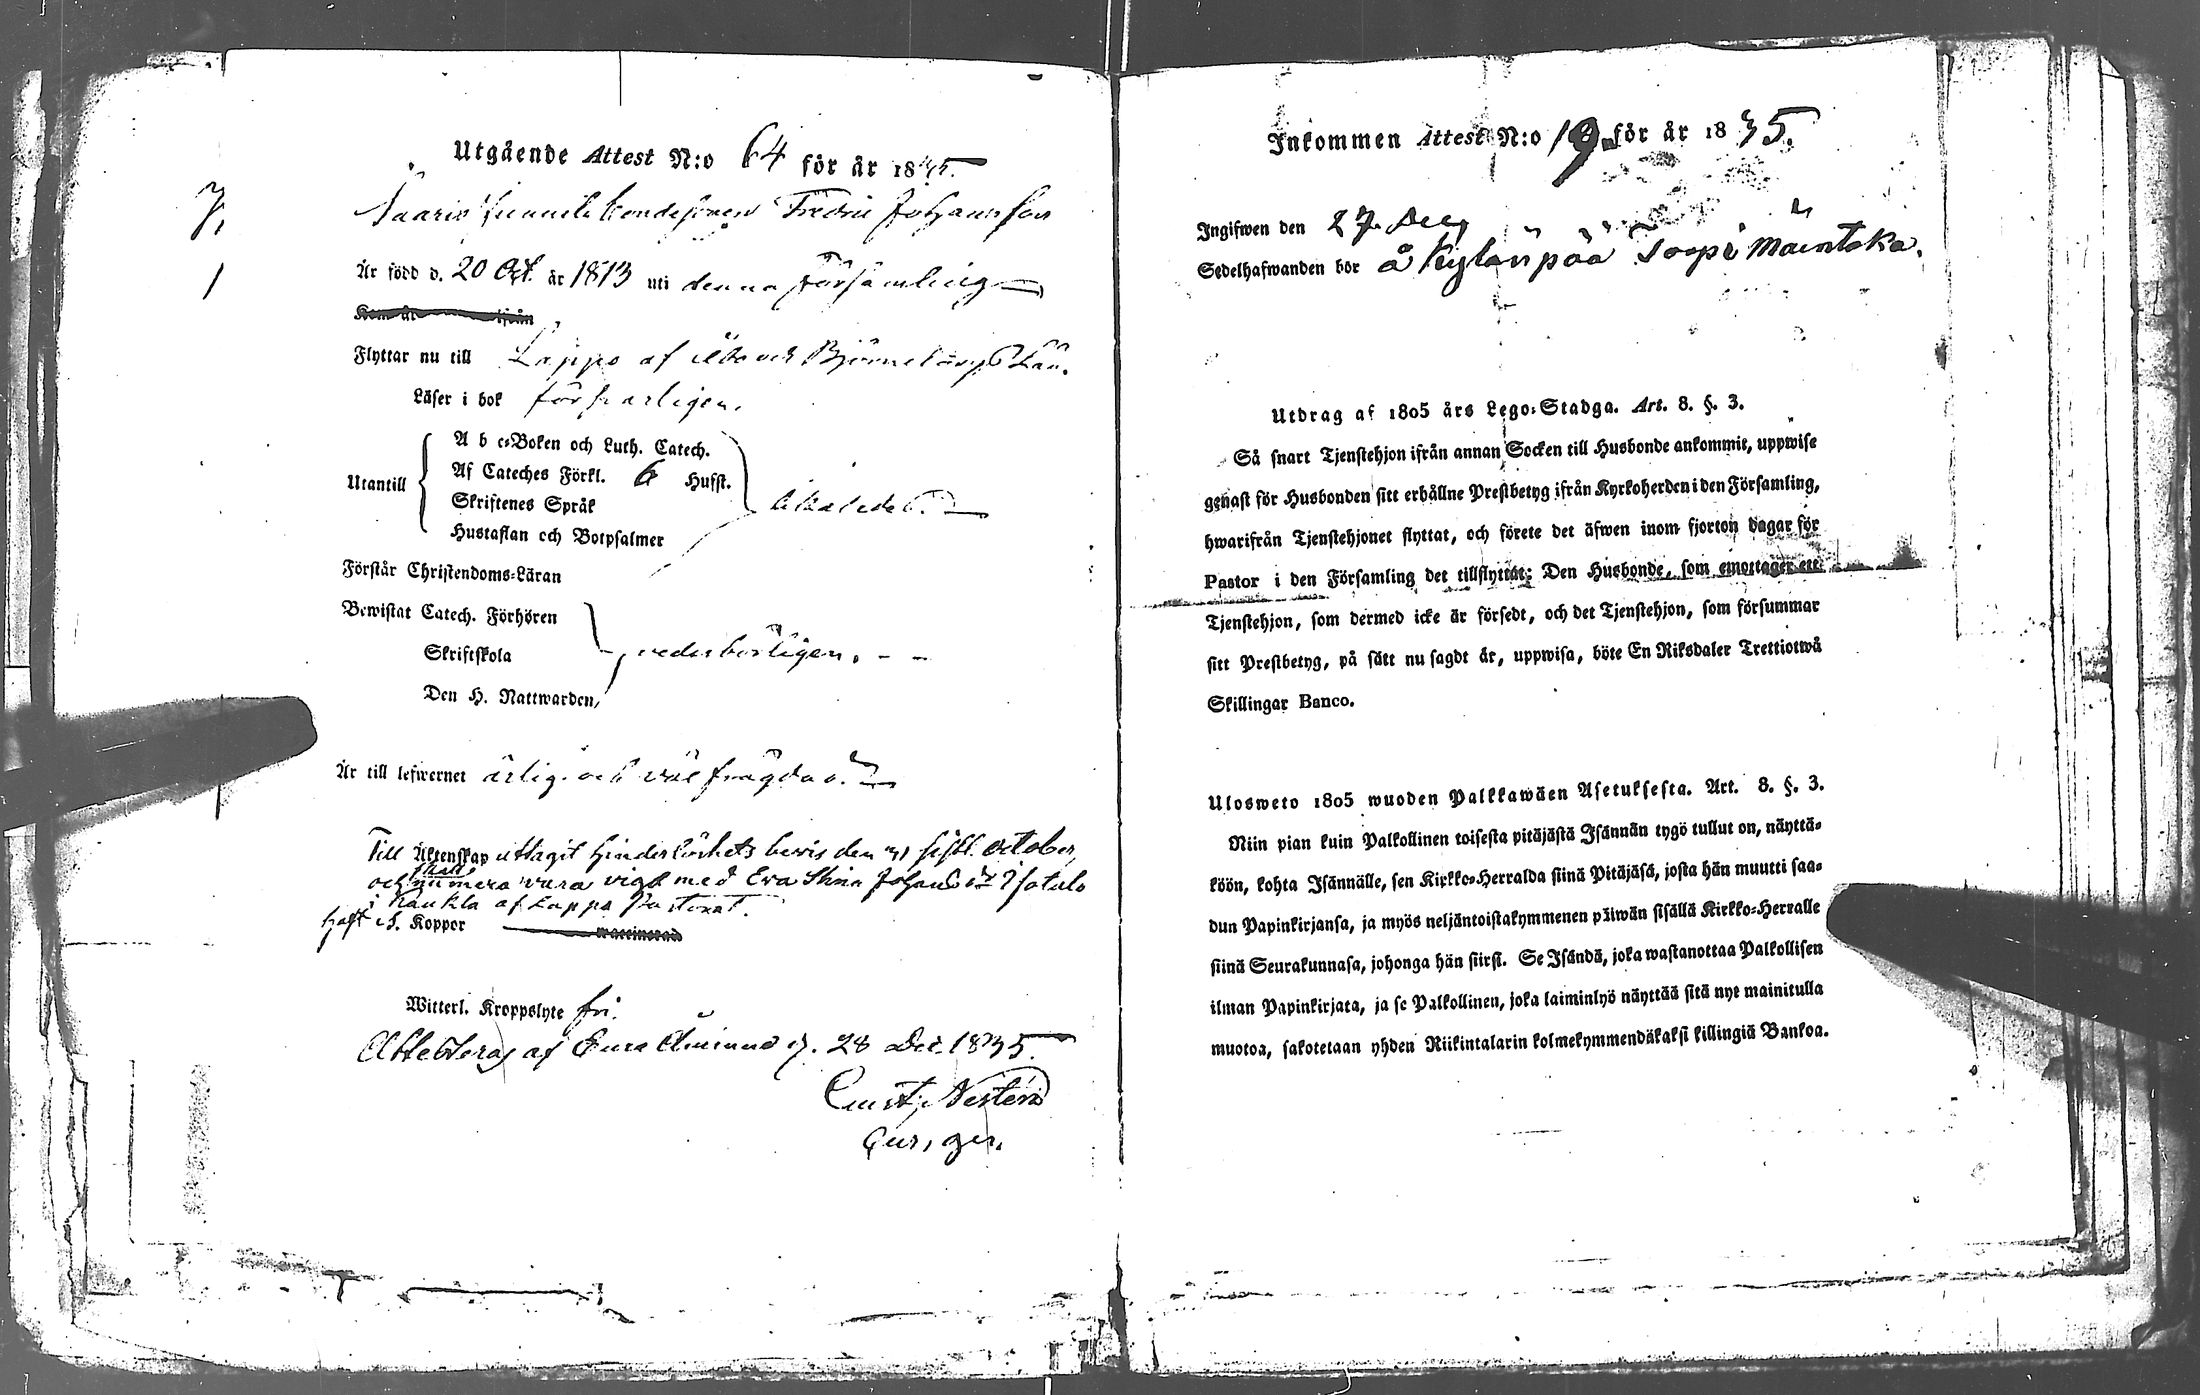 Utgående Attest N:o 64 för år 1835.
7.
Bondesonen Fredric Johansson
1
Är född d. 20 Oct. år 1813 uti denna Församling
Kom år ifrån
Flyttar nu till Lappo af Åbo och Björneborgs Län.
Läser i bok försvarligen.
A b c-Boken och Luth. Catech.
Af Cateches Förkl. 6 Hufst.
Utantill
likaledes.
Skriftenes Språk
Hustaflan och Botpsalmer
Förstår Christendoms-Läran
Bewistat Catech. Förhören
Skriftskola
vederbörligen.
Den H. Nattwarden,
Är till lefwernet ärlig och väl frägdad.
Till Äktenskap uttagit Hinderlöshets bevis den 31 sistl. October,
och skall numera vara vigd med Eva Stina Johansdr
i Kaukla af Lappo Pastorat.
haft d. S. Koppor
waccinerad
Witterl. Kroppslyte fri.
Attesteras af Eura d. 28 Dec. 1835.
Inkommen Attest N:o 19 för år 1835.
Ingifwen den 27 Dec
Sedelhafwanden bor å Kylänpää
Utdrag af 1805 års Lego-Stadga. Art. 8. §. 3.
Så snart Tjenstehjon ifrån annan Socken till Husbonde ankommit, uppwise
genast för Husbonden sitt erhållne Prestbetyg ifrån Kyrkoherden i den Församling,
hwarifrån Tjenstehjonet flyttat, och förete det äfwen inom fjorton dagar för
Pastor i den Församling det tillflyttat; Den Husbonde, som emottager ett
Tjenstehjon, som dermed icke är försedt, och det Tjenstehjon, som försummar
sitt Prestbetyg, på sätt nu sagdt är, uppwisa, böte En Riksdaler Trettiotwå
Skillingar Banco.
Ulosweto 1805 wuoden Palkkawäen Asetuksesta. Art. 8. §. 3.
Niin pian kuin Palkollinen toisesta pitäjästä Isännän tygö tullut on, näyttä-
köön, kohta Isännälle, sen Kirkko-Herralda siinä Pitäjäsä, josta hän muutti saa-
dun Papinkirjansa, ja myös neljäntoistakymmenen päiwän sisällä Kirkko-Herralle
siinä Seurakunnasa, johonga hän siirsi. Se Isändä, joka wastanottaa Palkollisen
ilman Papinkirjata, ja se Palkollinen, joka laiminlyö näyttää sitä nyt mainitulla
muotoa, sakotetaan yhden Riikintalarin kolmekymmendäkaksi killingiä Bankoa.